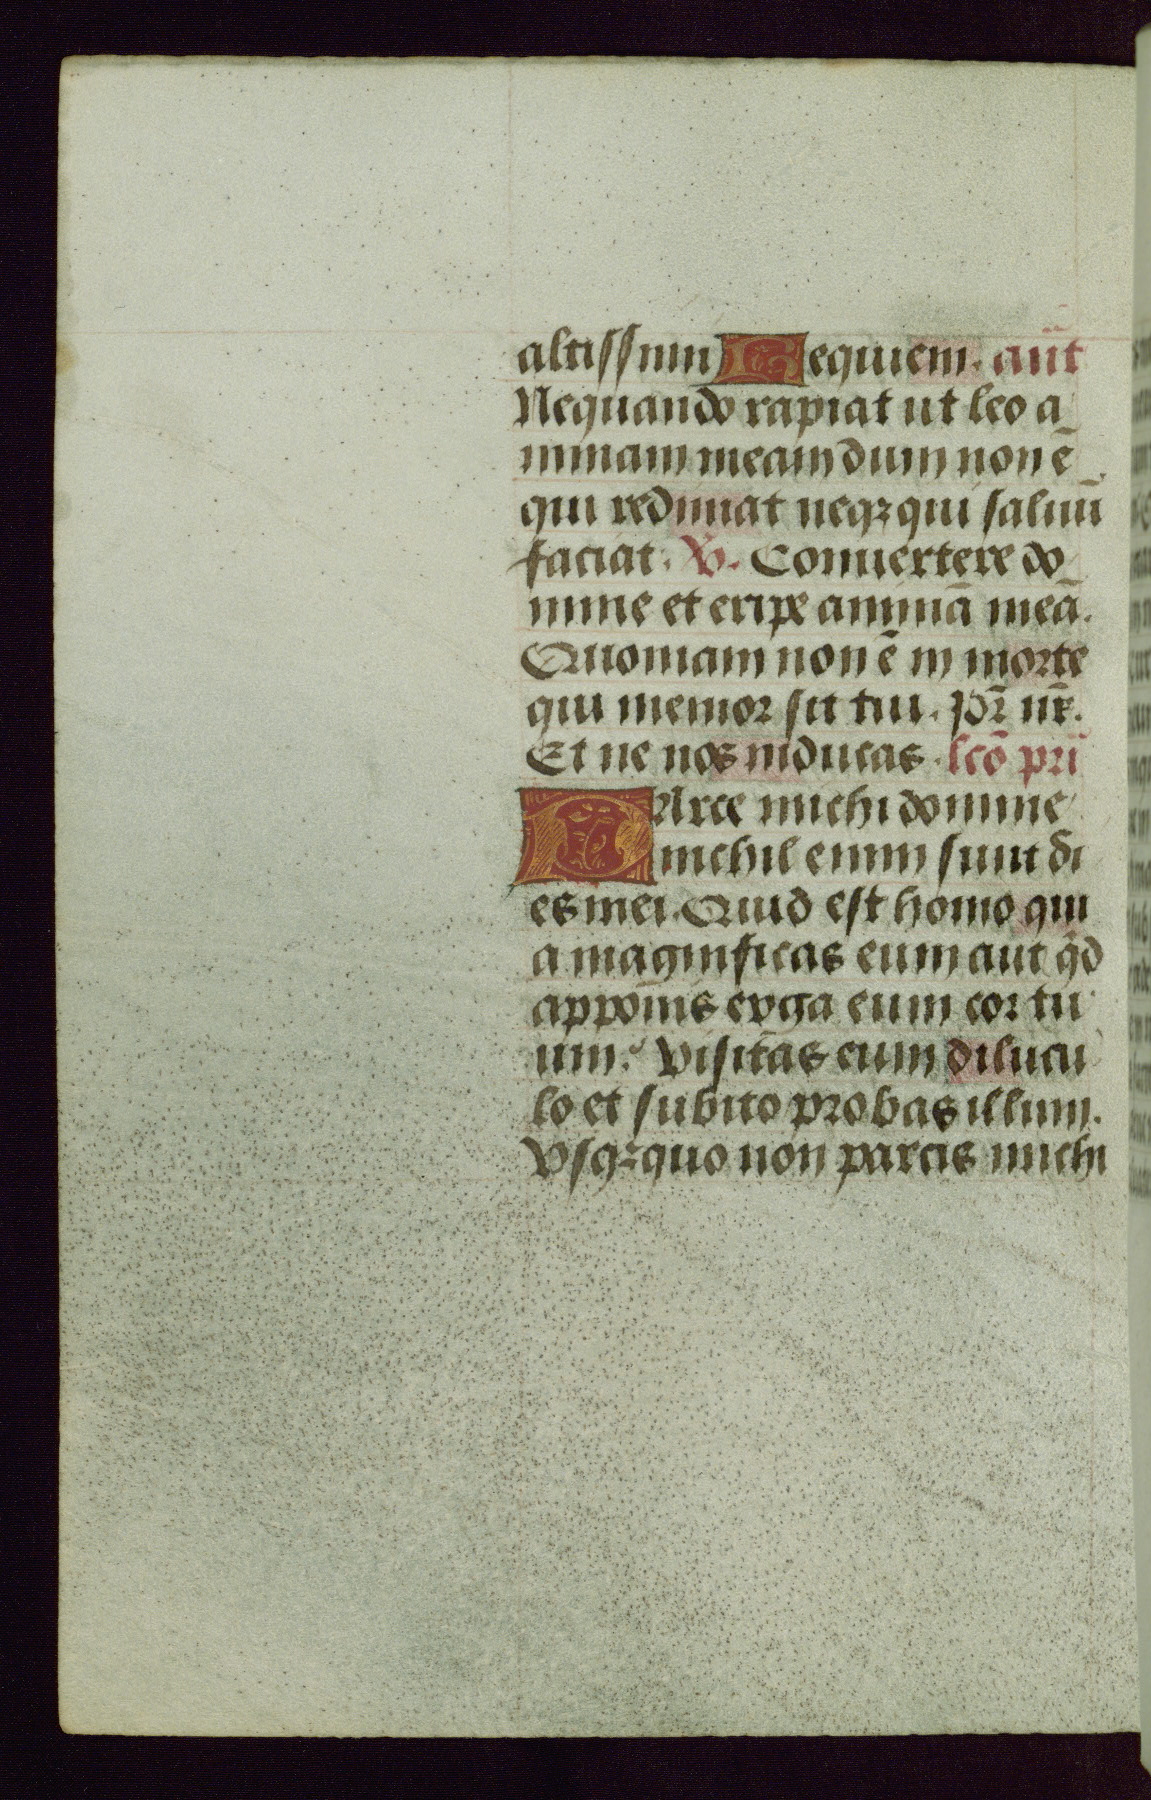 altissimi Requiem. añt
Nequando rapiat ut leo a
nimam meam dum non ē
qui redimat neqꝫ qui saluū
faciat. V. Conuertere do
mine et eripe animā meā.
Quoniam non ē in morte
qui memor sit tui. Pr̄ nr̄.
Et ne nos inducas. lcō pri
PArce michi domine
nichil enim sunt di
es mei. Quid est homo qui
a magnificas eum aut qd̄
apponis erga eum cor tu
um? Visitas eum dilucu
lo et subito probas illum.
Vsqꝫquo non parcis michi